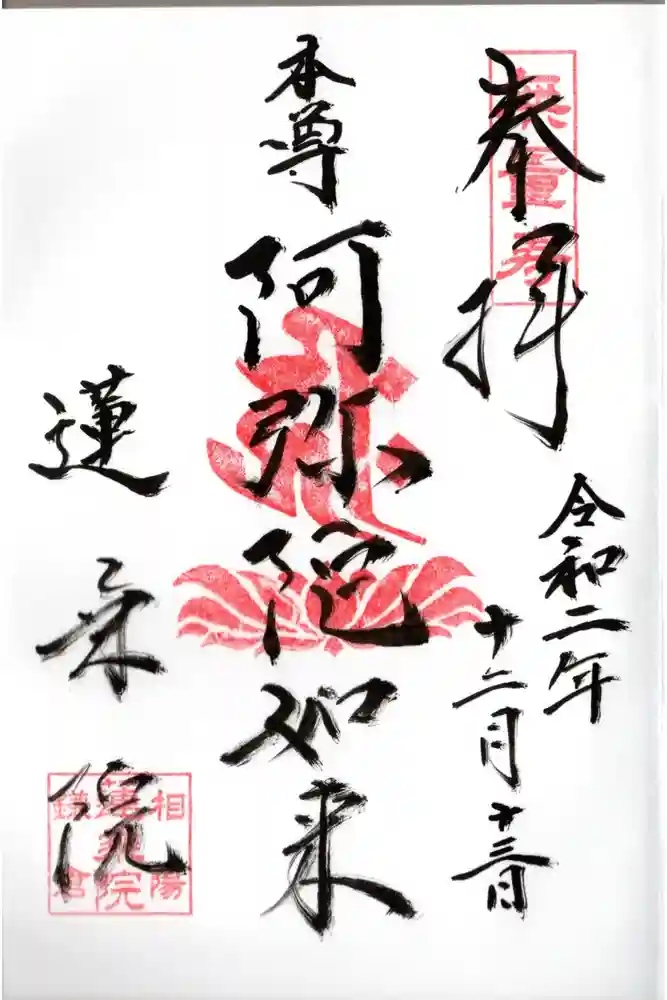 無量寿
奉拝
令和二年
十二月十三日
本尊 阿弥陀如来
蓮乗院
相陽
蓮乗院
鎌倉